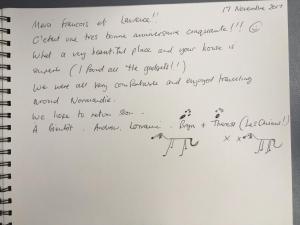 17 Novembre 2017
Merci Francois et Laurence!!
C'etait une tres bonne anniversaire cinquante!!!
What a very beautiful place and your house is
superb (I found all the gadgets!!)
We were all very comfortable and enjoyed traveling
around Normandie.
We hope to return soon.
A Bientôt. Andrew, Lorraine, Bryn + Theresa (Les Chiens!)
x x